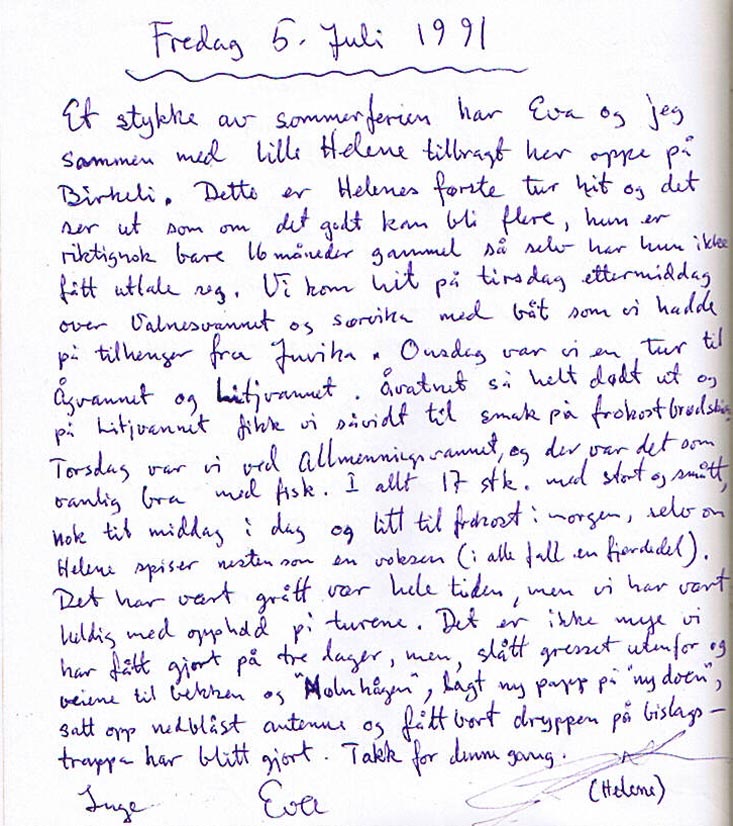 Fredag 5. Juli 1991
Et stykke av sommerferien har Eva og jeg
sammen med lille Helene tilbragt her oppe på
Birkeli. Dette er Helenes første tur hit og det
ser ut som om det godt kan bli flere, hun er
riktignok bare 16 måneder gammel så selv har hun ikke
fått uttale seg. Vi kom hit på tirsdag ettermiddag
over Valnesvannet og sørvika med båt som vi hadde
på tilhenger fra Juvika. Onsdag var vi en tur til
Ågvannet og Litjvannet. Åvatnet så helt dødt ut og
på Litjvannet fikk vi såvidt til smak på frokostbrødskiva
Torsdag var vi ved Allmenningsvannet, og der var det som
vanlig bra med fisk. I allt 17 stk. med stort og smått,
nok til middag i dag og litt til frokost i morgen, selv om
Helene spiser nesten som en voksen (i alle fall en fjerdedel).
Det har vært grått vær hele tiden, men vi har vært
heldig med opphold på turene. Det er ikke mye vi
har fått gjort på tre dager, men, slått gresset utenfor og
veiene til bekken og "Molnhågen", lagt ny papp på "nydoen",
satt opp nedblåst antenne og fått bort dryppen på bislag-
trappa har blitt gjort. Takk for denne gang.
Inge Eva (Helene)